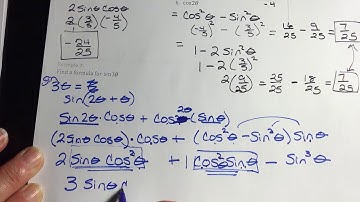 2 Sinθ Cosθ
2 (3/5)(-4/5)
-24/25
b. cos2θ
Cos²θ - Sin²θ
(-4/5)² - (3/5)² = 16/25 - 9/25 = 7/25
1 - 2 Sin²θ
1 - 2 (3/5)²
2(9/25) = 25/25 - 18/25 = 7/25
-4
Find a formula for sin3θ
3θ =
Sin(2θ + θ)
Sin2θ · Cosθ + Cos2θ (Sinθ)
(2Sinθ Cosθ) · Cosθ + (Cos²θ - Sin²θ) Sinθ
2 Sinθ Cos²θ + 1 Cos²θ Sinθ - Sin³θ
3 Sinθ